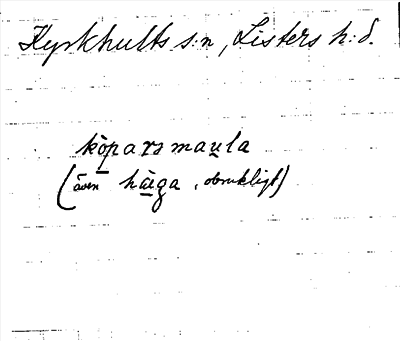 Kyrkhults s:n, Listers h:d.
kòparsmau̲la
(även hàga, obrukligt)